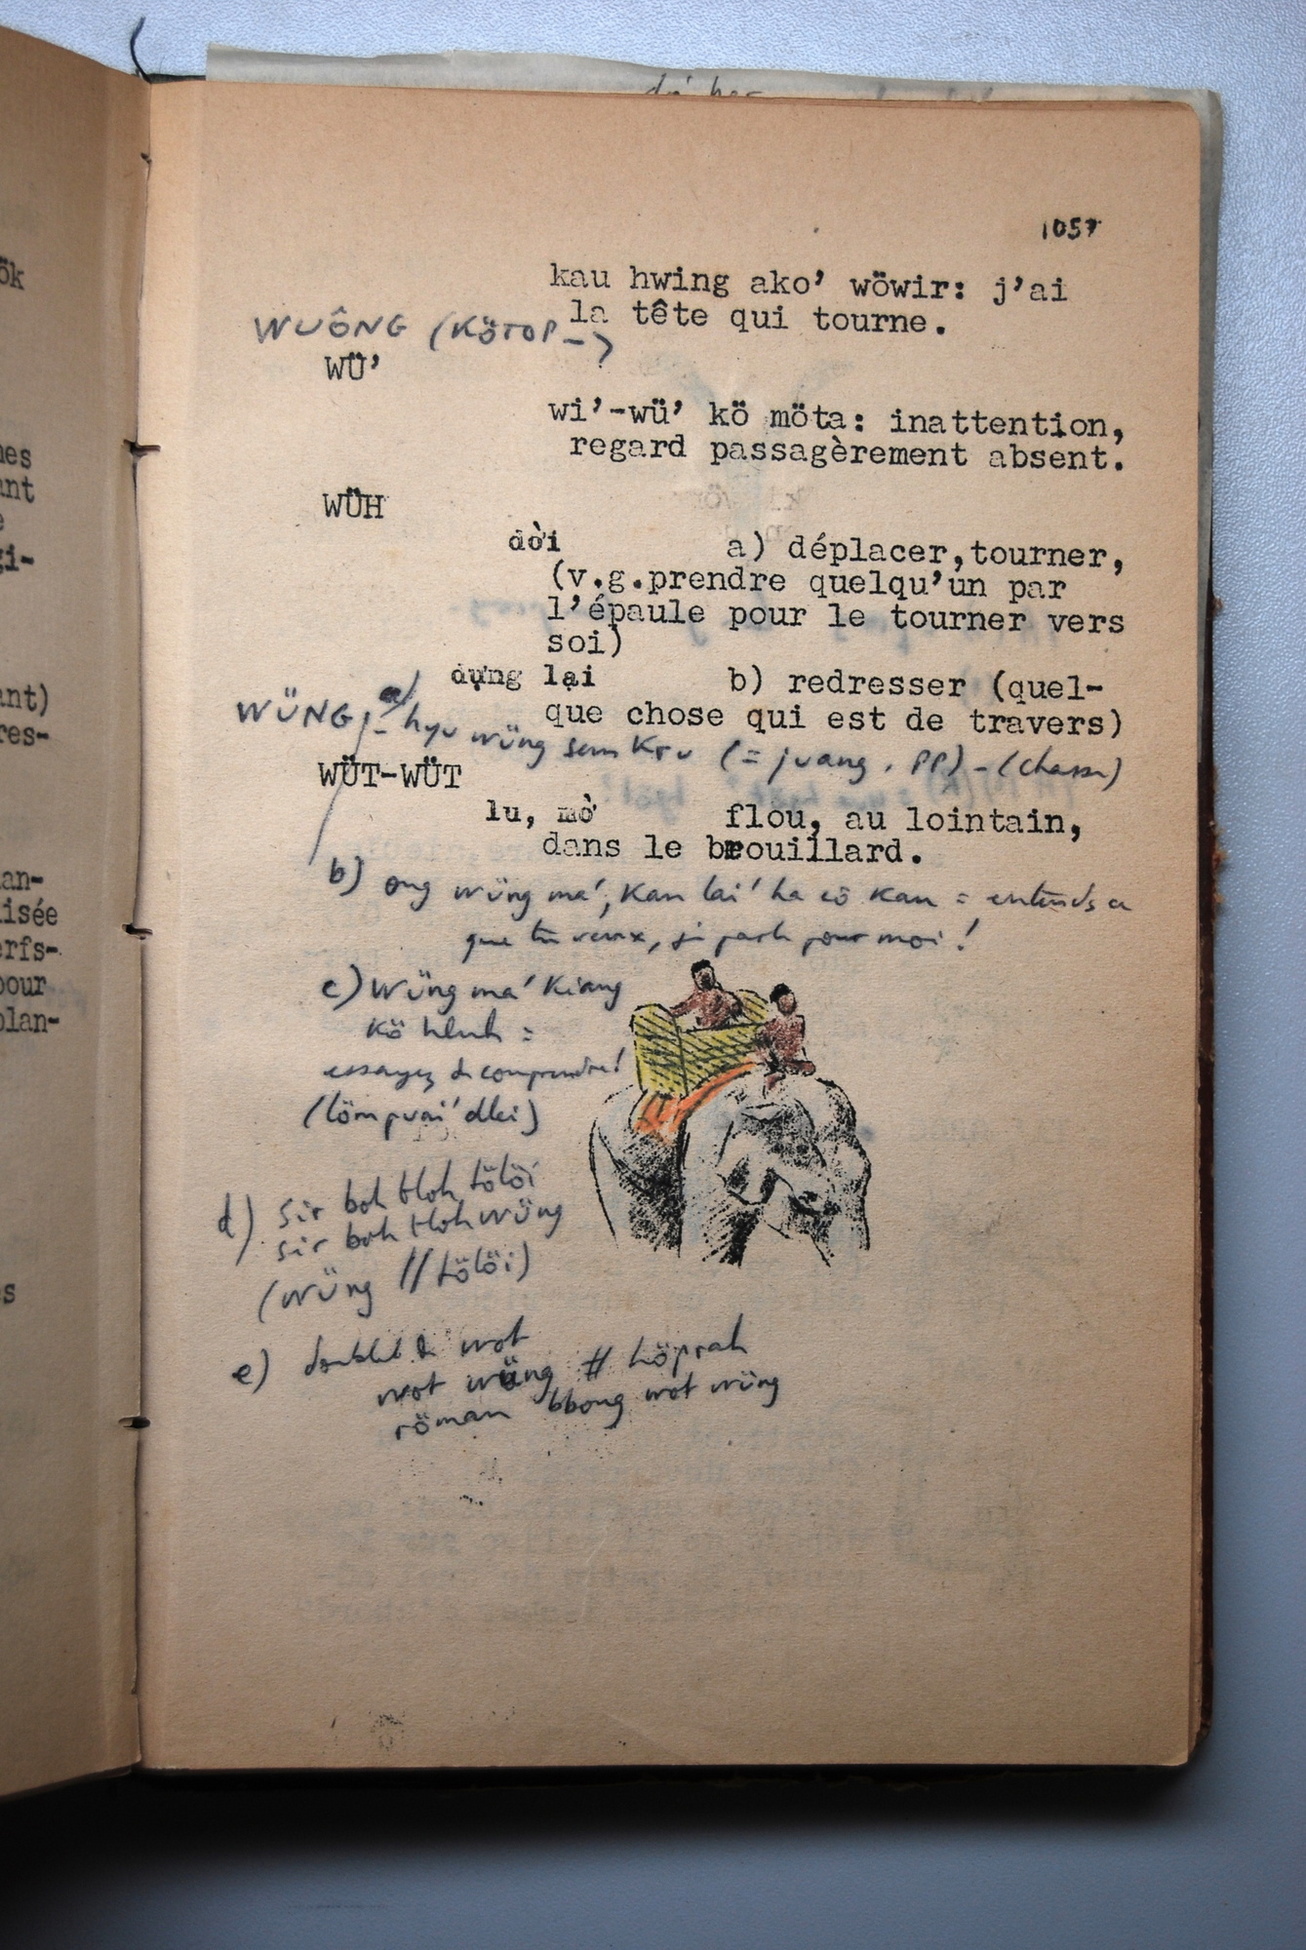 1057
kau hwing ako' wöwir: j'ai
la tête qui tourne.
WUÔNG (KÖTOP_)
WÜ'
wi'-wü' kö möta: inattention,
regard passagèrement absent.
WÜH
dời a) déplacer,tourner,
(v.g.prendre quelqu'un par
l'épaule pour le tourner vers
soi)
dựng lại b) redresser (quel-
que chose qui est de travers)
WÜNG a) hyu wüng sem Kru (= juang, PP) - (chasse)
WÜT-WÜT
lu, mờ flou, au lointain,
dans le brouillard.
b) ong wüng ma', Kan lai' ha cö Kan = entends ce
que tu veux, si parle pour moi !
c) Wüng ma' Kiang
Kö hluh =
essayez de comprendre!
(löm puai' dlei)
d) sir boh tloh tölöi
sir boh tloh wüng
(wüng // tölöi)
e) doublet de wot
wot wüng # höprah
röman bbong wot wüng
ök
nes
ant
e
gi-
ant)
res-
an-
isée
erfs-
pour
plan-
s